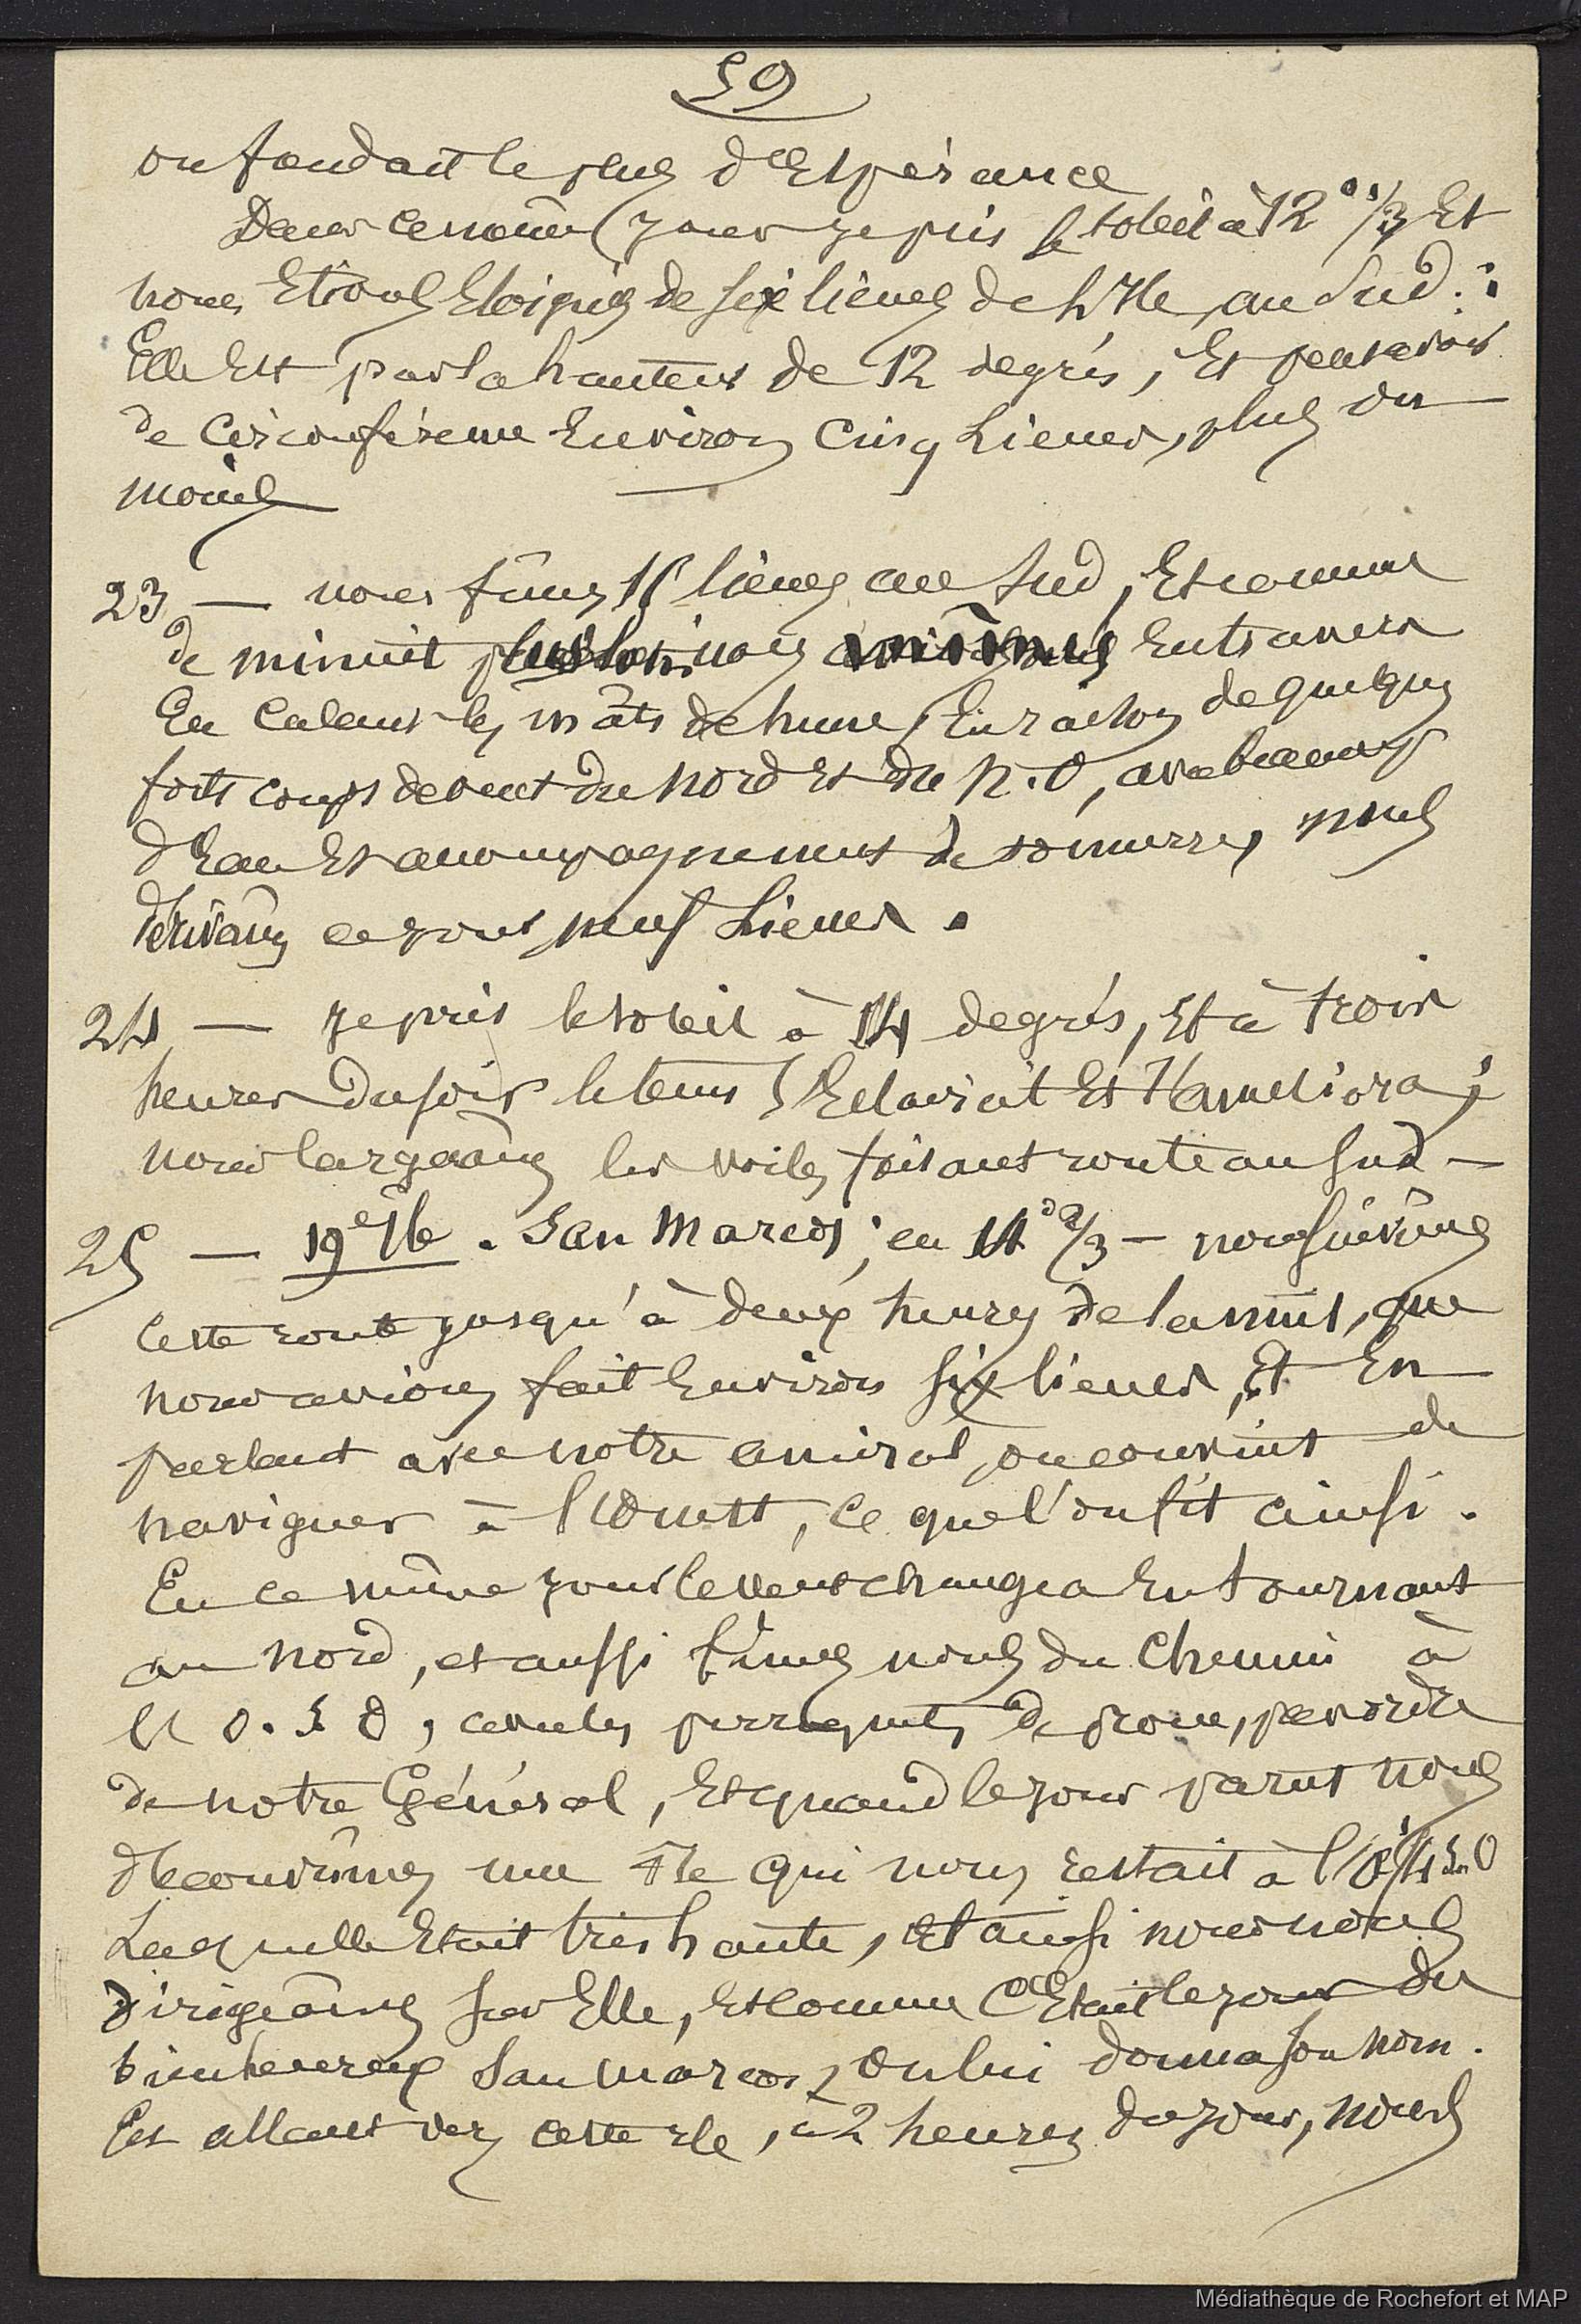 59
on fondait le plus d'Espérance
Dans ce même jour je pris le soleil à 12° 1/3 Et
nous Etions Eloignés de six lieues de l'Ile, au Sud :
Elle Est par la hauteur de 12 degrés, Et peut avoir
de Circonférence Environ Cinq Lieues, plus ou
moins
23 — nous fûmes 15 lieues au Sud, Et comme
de minuit plus loin nous mîmes En travers
En Calant les mâts de hune, En raison de quelques
forts coups de vent du Nord Et du N.O, avec beaucoup
d'Eau Et accompagnement de tonnerre, nous
dérivâmes ce jour neuf Lieues.
24 — Je pris le soleil à 14 degrés, Et à trois
heures du soir le tems S'Eclaircit Et S'améliora ;
nous largâmes les voiles faisant route au Sud —
25 — 19e Ile . San Marcos ; en 14° 2/3 — nous suivîmes
cette route jusqu'à deux heures de la nuit, que
nous avions fait Environ six lieues, Et En
parlant avec notre amiral, on convint de
naviguer à l'Ouest, ce que l'on fit ainsi.
En ce même jour le vent changea En tournant
au Nord, et aussi fîmes nous du Chemin à
l'O.S O, avec les perroquets de proue, par ordre
de notre Général, Et quand le jour parut nous
découvrîmes une Ile qui nous restait à l'O 1/4 S.O
Laquelle Etait très haute, Et ainsi nous nous
dirigeâmes sur Elle, Et comme C'Etait le jour du
bienheureux San Marcos, on lui donna son nom.
Et allant vers cette Ile, à 2 heures du jour, nous
Médiathèque de Rochefort et MAP